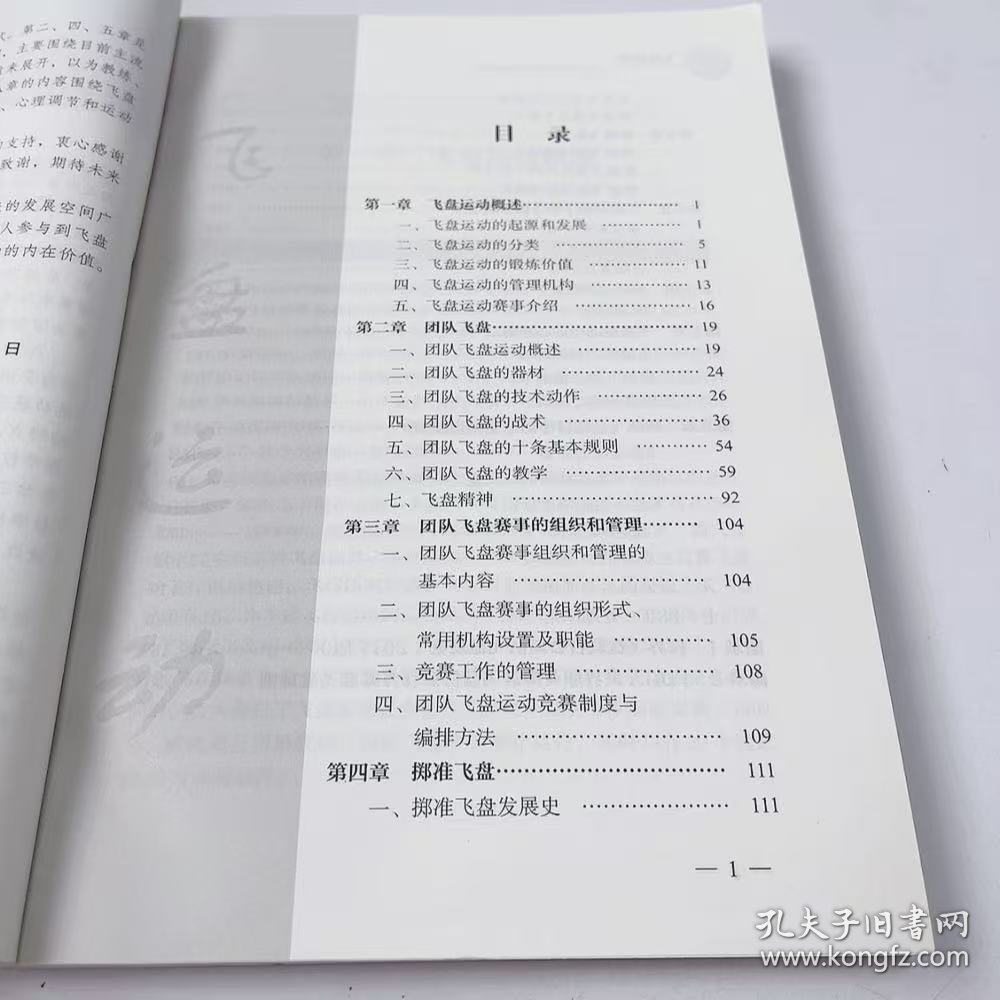 。第二、四、五章是
，主要围绕目前主流
来展开，以为教练、
章的内容围绕飞盘
、心理调节和运动
支持，衷心感谢
致谢，期待未来
的发展空间广
人参与到飞盘
的内在价值。
日
飞
盘
运
动
目 录
第一章 飞盘运动概述 1
一、飞盘运动的起源和发展 1
二、飞盘运动的分类 5
三、飞盘运动的锻炼价值 11
四、飞盘运动的管理机构 13
五、飞盘运动赛事介绍 16
第二章 团队飞盘 19
一、团队飞盘运动概述 19
二、团队飞盘的器材 24
三、团队飞盘的技术动作 26
四、团队飞盘的战术 36
五、团队飞盘的十条基本规则 54
六、团队飞盘的教学 59
七、飞盘精神 92
第三章 团队飞盘赛事的组织和管理 104
一、团队飞盘赛事组织和管理的
基本内容 104
二、团队飞盘赛事的组织形式、
常用机构设置及职能 105
三、竞赛工作的管理 108
四、团队飞盘运动竞赛制度与
编排方法 109
第四章 掷准飞盘 111
一、掷准飞盘发展史 111
— 1 —
孔夫子旧书网
www.kongfz.com